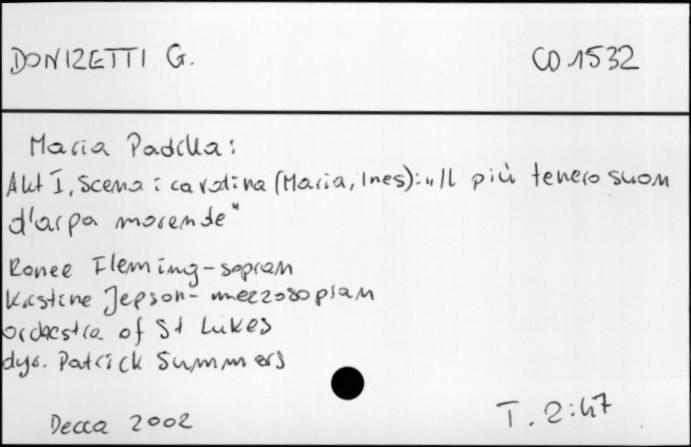 DONIZETTI G.
CD 1532
Maria Padilla:
Akt I, Scena i cavatina (Maria, Ines): "Il più tenero suon
d'arpa morende"
Renee Fleming - sopran
Kristine Jepson - mezzosopran
Orchestra of St Lukes
dyr. Patrick Summers
Decca 2002
T. 2:47